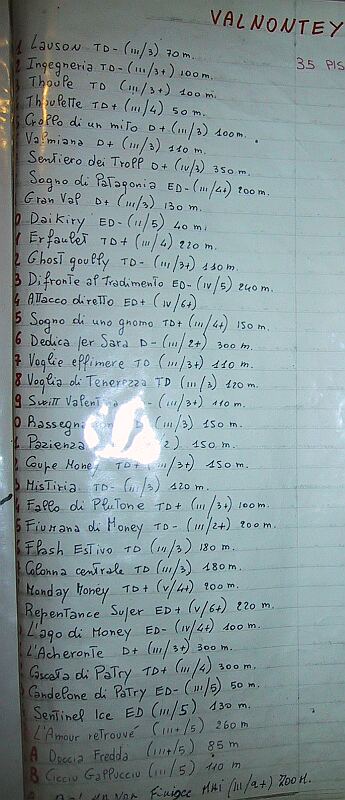 VALNONTEY
35 PIS
1 Lauson TD- (III/3) 70 m.
2 Ingegneria TD- (III/3+) 100 m.
3 Thoule TD (III/3+) 100 m.
Thoulette TD+ (III/4) 50 m.
Crollo di un mito D+ (III/3) 100 m.
Valmiana D+ (III/3) 110 m.
Sentiero dei Troll D+ (IV/3) 350 m.
Sogno di Patagonia ED- (III/4+) 200 m.
Gran Val D+ (III/3) 130 m.
0 Daikiry ED- (II/5) 40 m.
1 Erfaulet TD+ (III/4) 220 m.
2 Ghost goully TD- (III/3+) 110 m.
3 Difronte al Tradimento ED- (IV/5) 240 m.
4 Attacco diretto ED+ (IV/6+)
5 Sogno di uno gnomo TD+ (III/4+) 150 m.
6 Dedica per Sara D- (III/2+) 300 m.
7 Voglie effimere TD (III/3+) 110 m.
8 Voglia di Tenerezza TD (III/3) 120 m.
9 Valentin (III/3+) 110 m.
0 (III/3) 150 m.
1 Pazienza 2) 150 m.
2 Coupe Money TD+ (III/3+) 150 m.
3 Mistiria TD- (III/3) 120 m.
4 Fallo di Plutone TD+ (III/3+) 100 m.
5 Fiumana di Money TD- (III/2+) 200 m.
Flash Estivo TD (III/3) 180 m.
Colonna centrale TD (III/3) 180 m.
Monday Money TD+ (V/4+) 200 m.
Repentance Super ED+ (V/6+) 220 m.
L'ago di Money ED- (IV/4+) 100 m.
L'Acheronte D+ (III/3+) 300 m.
Cascata di Patry TD+ (III/4) 300 m.
Candelone di Patry ED- (III/5) 50 m.
Sentinel Ice ED (III/5) 130 m.
L'Amour retrouvé (III+/5) 260 m
A Doccia Fredda (III+/5) 85 m
B Cicciu Gappucciu (III/5) 110 m
Finisce MAI (III/2+) 200 M.